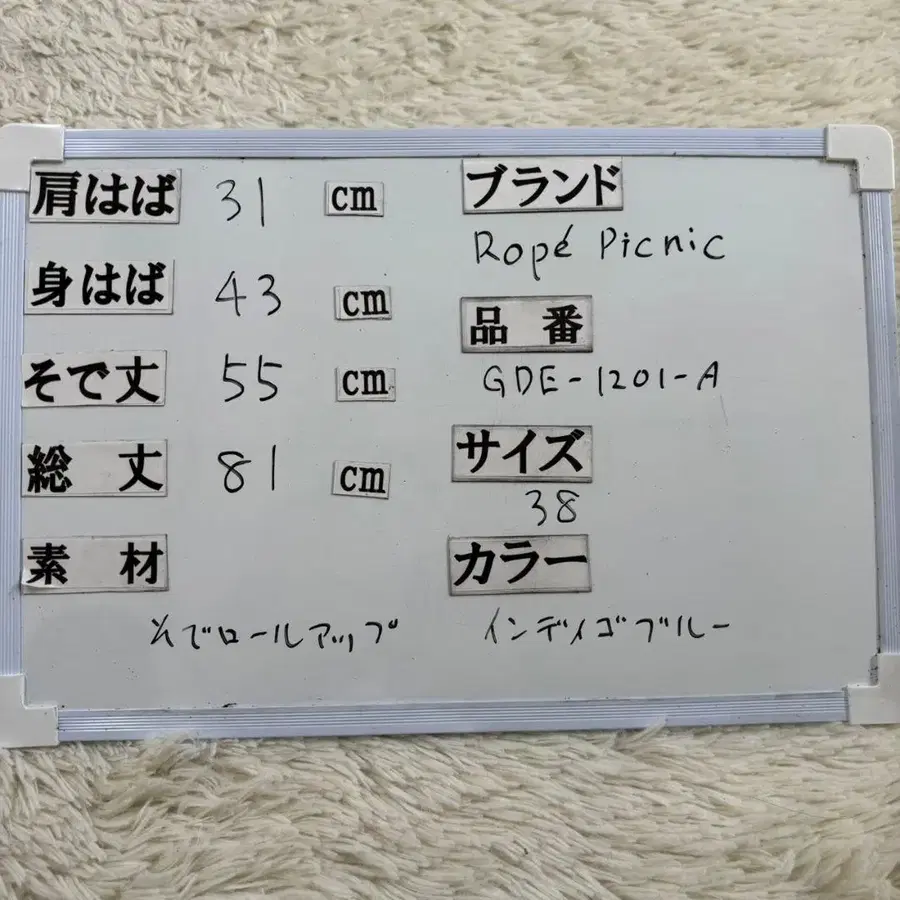 肩はば 31 cm
身はば 43 cm
そで丈 55 cm
総丈 81 cm
素材
そでロールアップ
ブランド
Ropé Picnic
品番
GDE-1201-A
サイズ
38
カラー
インディゴブルー